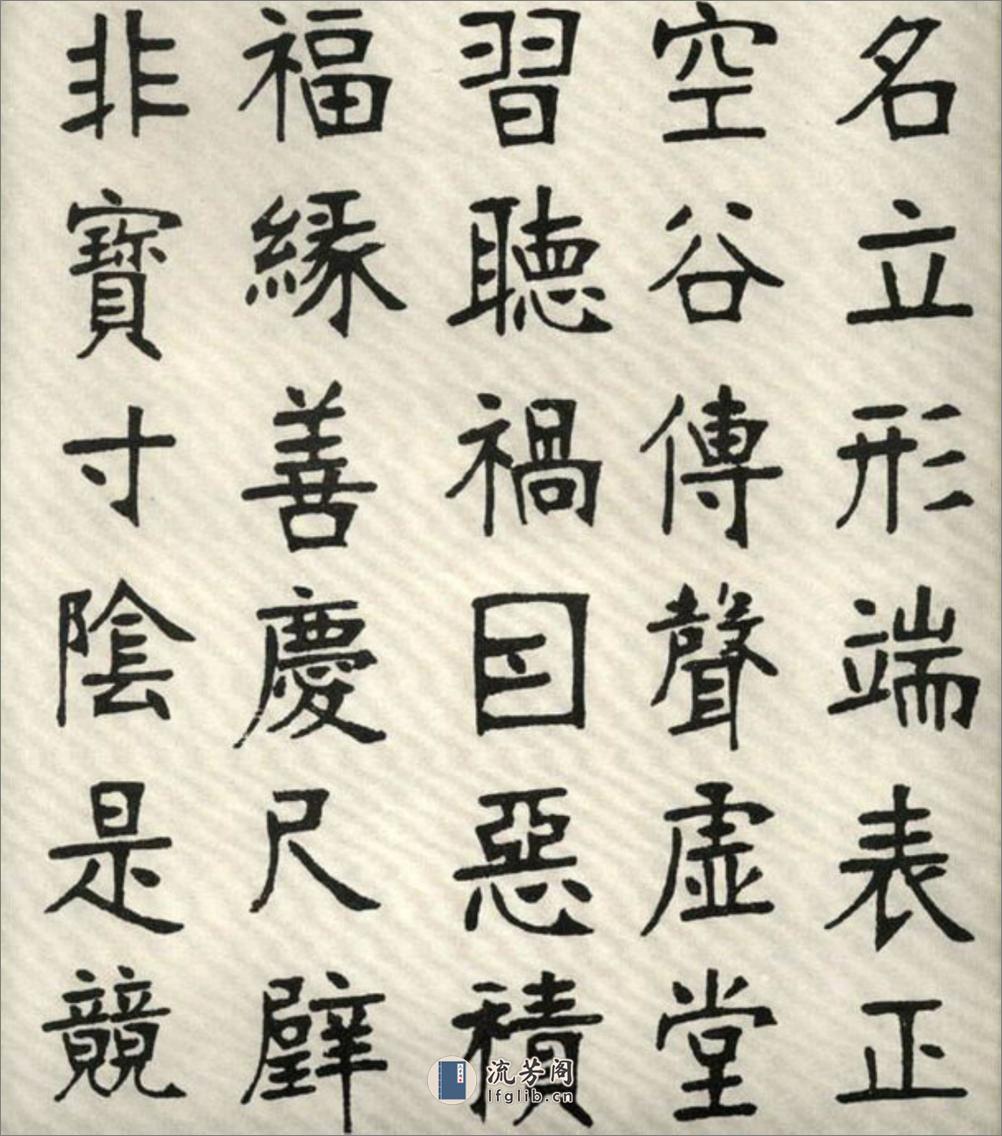 名立形端表正
空谷傳聲虛堂
習聽禍因惡積
福緣善慶尺璧
非寶寸陰是競
流芳阁
lfglib.cn